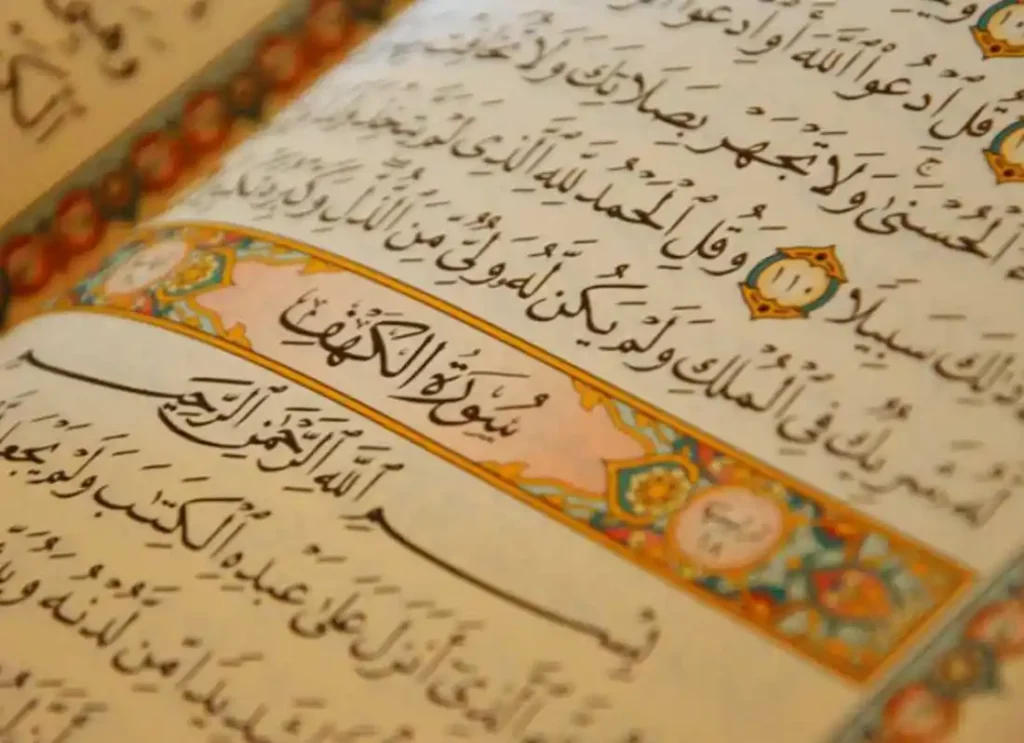 قُلِ ٱدْعُوا۟ ٱللَّهَ أَوِ ٱدْعُوا۟
ٱلْحُسْنَىٰ ۚ وَلَا تَجْهَرْ بِصَلَاتِكَ وَلَا تُخَافِتْ
ذَٰلِكَ سَبِيلًا ١١٠ وَقُلِ ٱلْحَمْدُ لِلَّهِ ٱلَّذِى لَمْ يَتَّخِذْ
لَّهُۥ شَرِيكٌ فِى ٱلْمُلْكِ وَلَمْ يَكُن لَّهُۥ وَلِىٌّ مِّنَ ٱلذُّلِّ وَكَبِّرْهُ
ترتيبها ١٨ سُورَةُ الكَهْفِ
بِسْمِ ٱللَّهِ ٱلرَّحْمَٰنِ ٱلرَّحِيمِ
ٱلَّذِىٓ أَنزَلَ عَلَىٰ عَبْدِهِ ٱلْكِتَٰبَ وَلَمْ يَجْعَل
شَدِيدًا مِّن لَّدُنْهُ